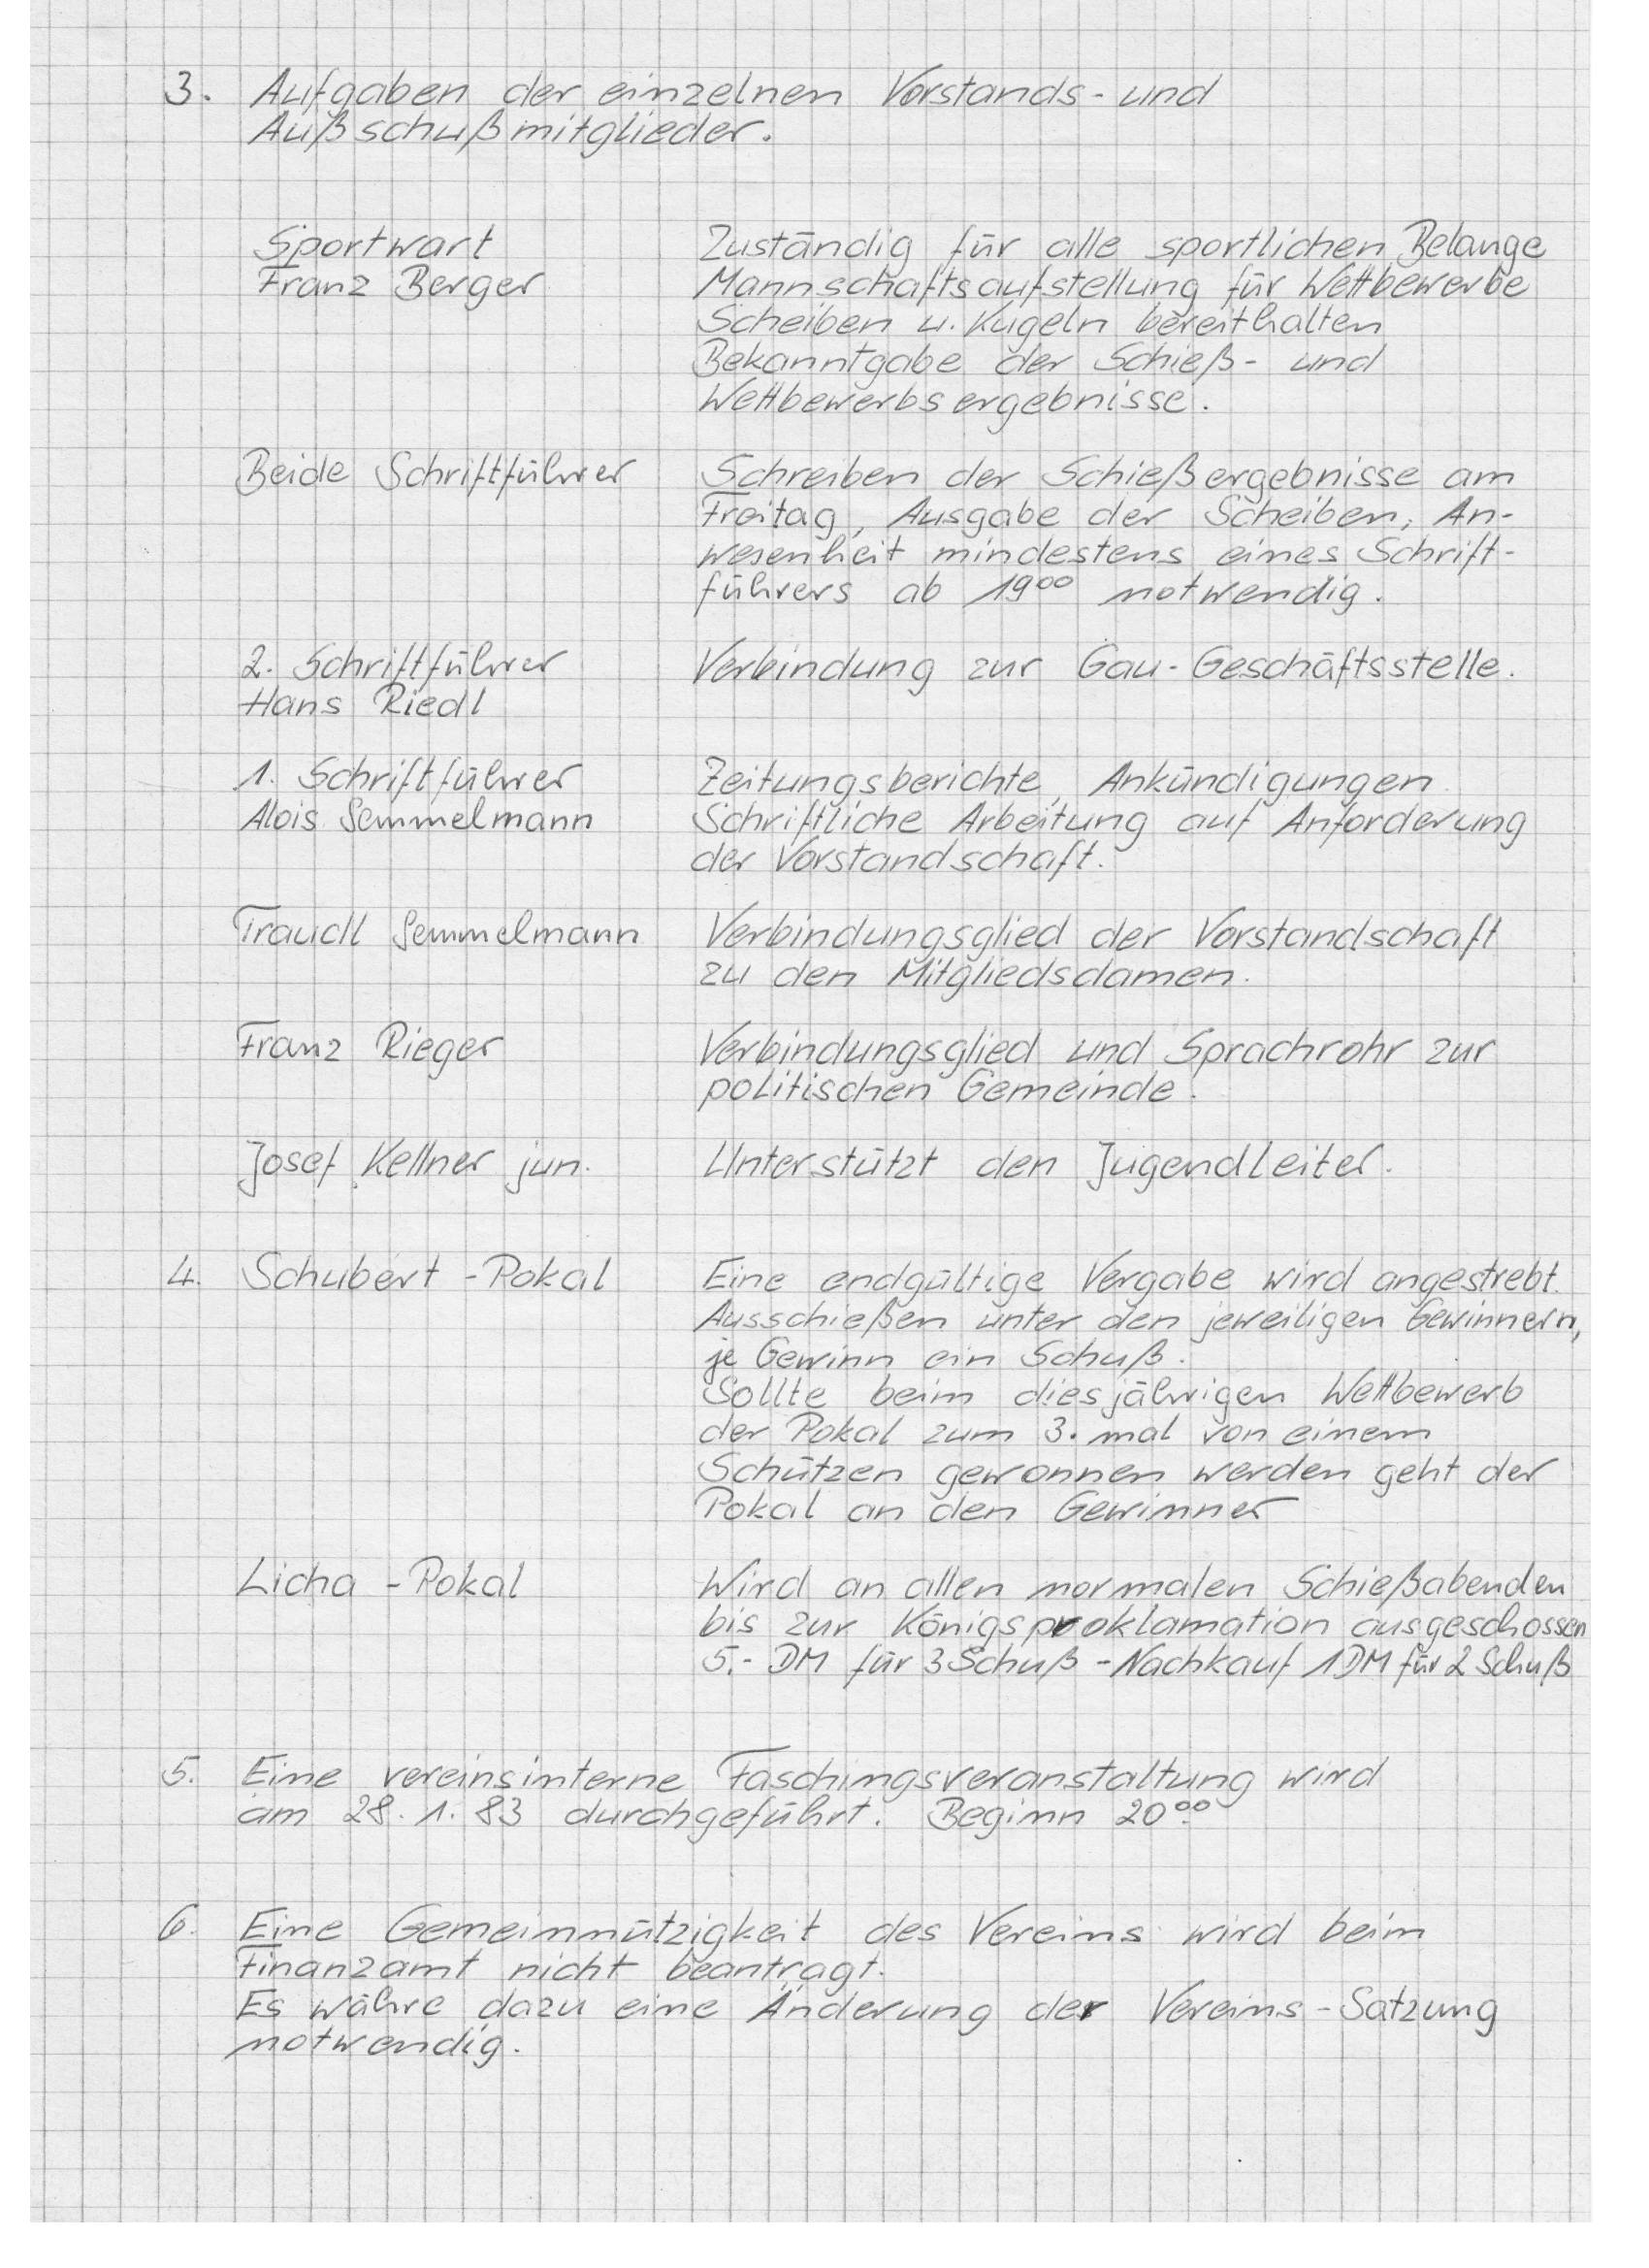 3. Aufgaben der einzelnen Vorstands- und
Außschußmitglieder.
Sportwart
Franz Berger
Zuständig für alle sportlichen Belange
Mannschaftsaufstellung für Wettbewerbe
Scheiben u. Kugeln bereithalten
Bekanntgabe der Schieß- und
Wettbewerbsergebnisse.
Beide Schriftführer
Schreiben der Schießergebnisse am
Freitag, Ausgabe der Scheiben, An-
wesenheit mindestens eines Schrift-
führers ab 19⁰⁰ notwendig.
2. Schriftführer
Hans Riedl
Verbindung zur Gau-Geschäftsstelle.
1. Schriftführer
Alois Semmelmann
Zeitungsberichte, Ankündigungen
Schriftliche Arbeitung auf Anforderung
der Vorstandschaft.
Traudl Semmelmann
Verbindungsglied der Vorstandschaft
zu den Mitgliedsdamen.
Franz Rieger
Verbindungsglied und Sprachrohr zur
politischen Gemeinde.
Josef Kellner jun.
Unterstützt den Jugendleiter.
4. Schubert-Pokal
Eine endgültige Vergabe wird angestrebt.
Ausschießen unter den jeweiligen Gewinnern,
je Gewinn ein Schuß.
Sollte beim diesjährigen Wettbewerb
der Pokal zum 3. mal von einem
Schützen gewonnen werden geht der
Pokal an den Gewinner
Licha-Pokal
Wird an allen normalen Schießabenden
bis zur Königsproklamation ausgeschossen
5.- DM für 3 Schuß - Nachkauf 1 DM für 2 Schuß
5. Eine vereinsinterne Faschingsveranstaltung wird
am 28.1.83 durchgeführt. Beginn 20⁰⁰
6. Eine Gemeinnützigkeit des Vereins wird beim
Finanzamt nicht beantragt.
Es währe dazu eine Änderung der Vereins-Satzung
notwendig.